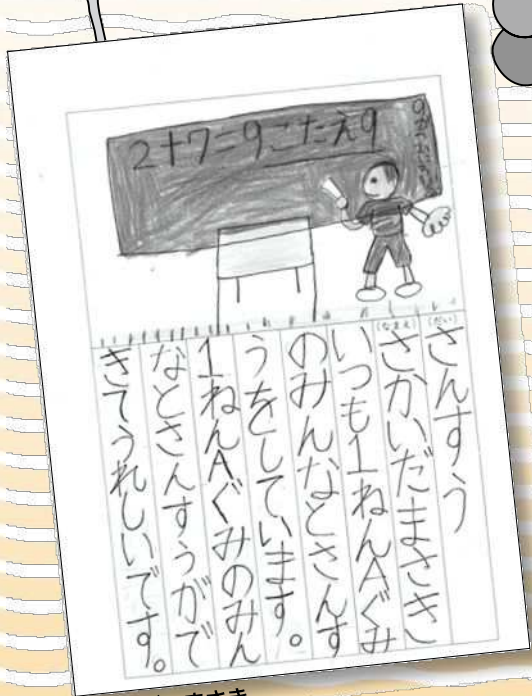 2+7=9こたえ9
(だい)
さんすう
(なまえ)
さかいだまさき
いつも1ねんAぐみ
のみんなとさんす
うをしています。
1ねんAぐみのみん
なとさんすうがで
きてうれしいです。
まさき